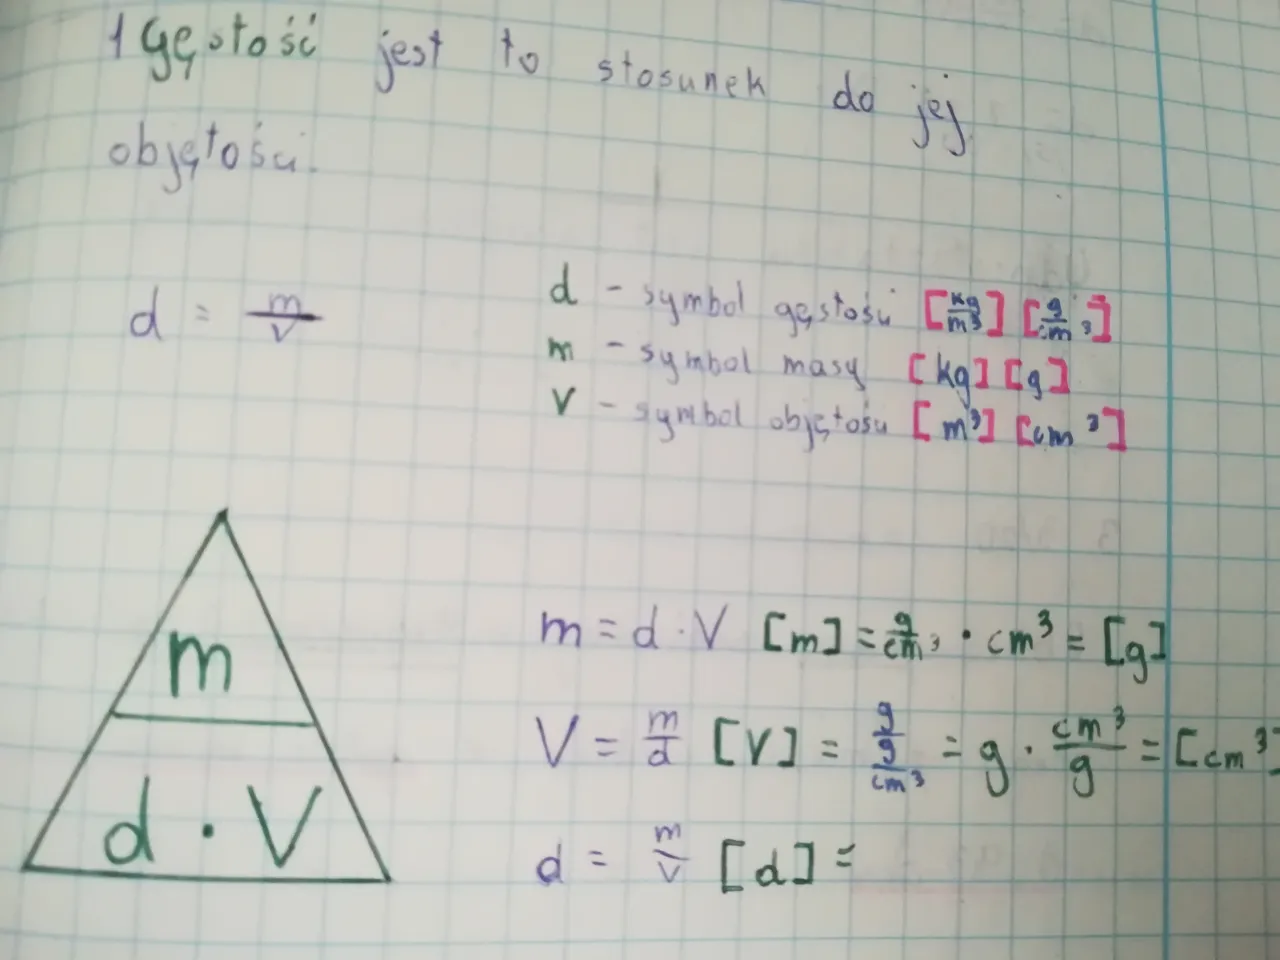 1 Gęstość jest to stosunek do jej
objętości.
d = m/V
d - symbol gęstości [kg/m³] [g/cm³]
m - symbol masy [kg] [g]
V - symbol objętości [m³] [cm³]
m
d · V
m = d · V [m] = g/cm³ · cm³ = [g]
V = m/d [V] = g/g/cm³ = g · cm³/g = [cm³]
d = m/V [d] =